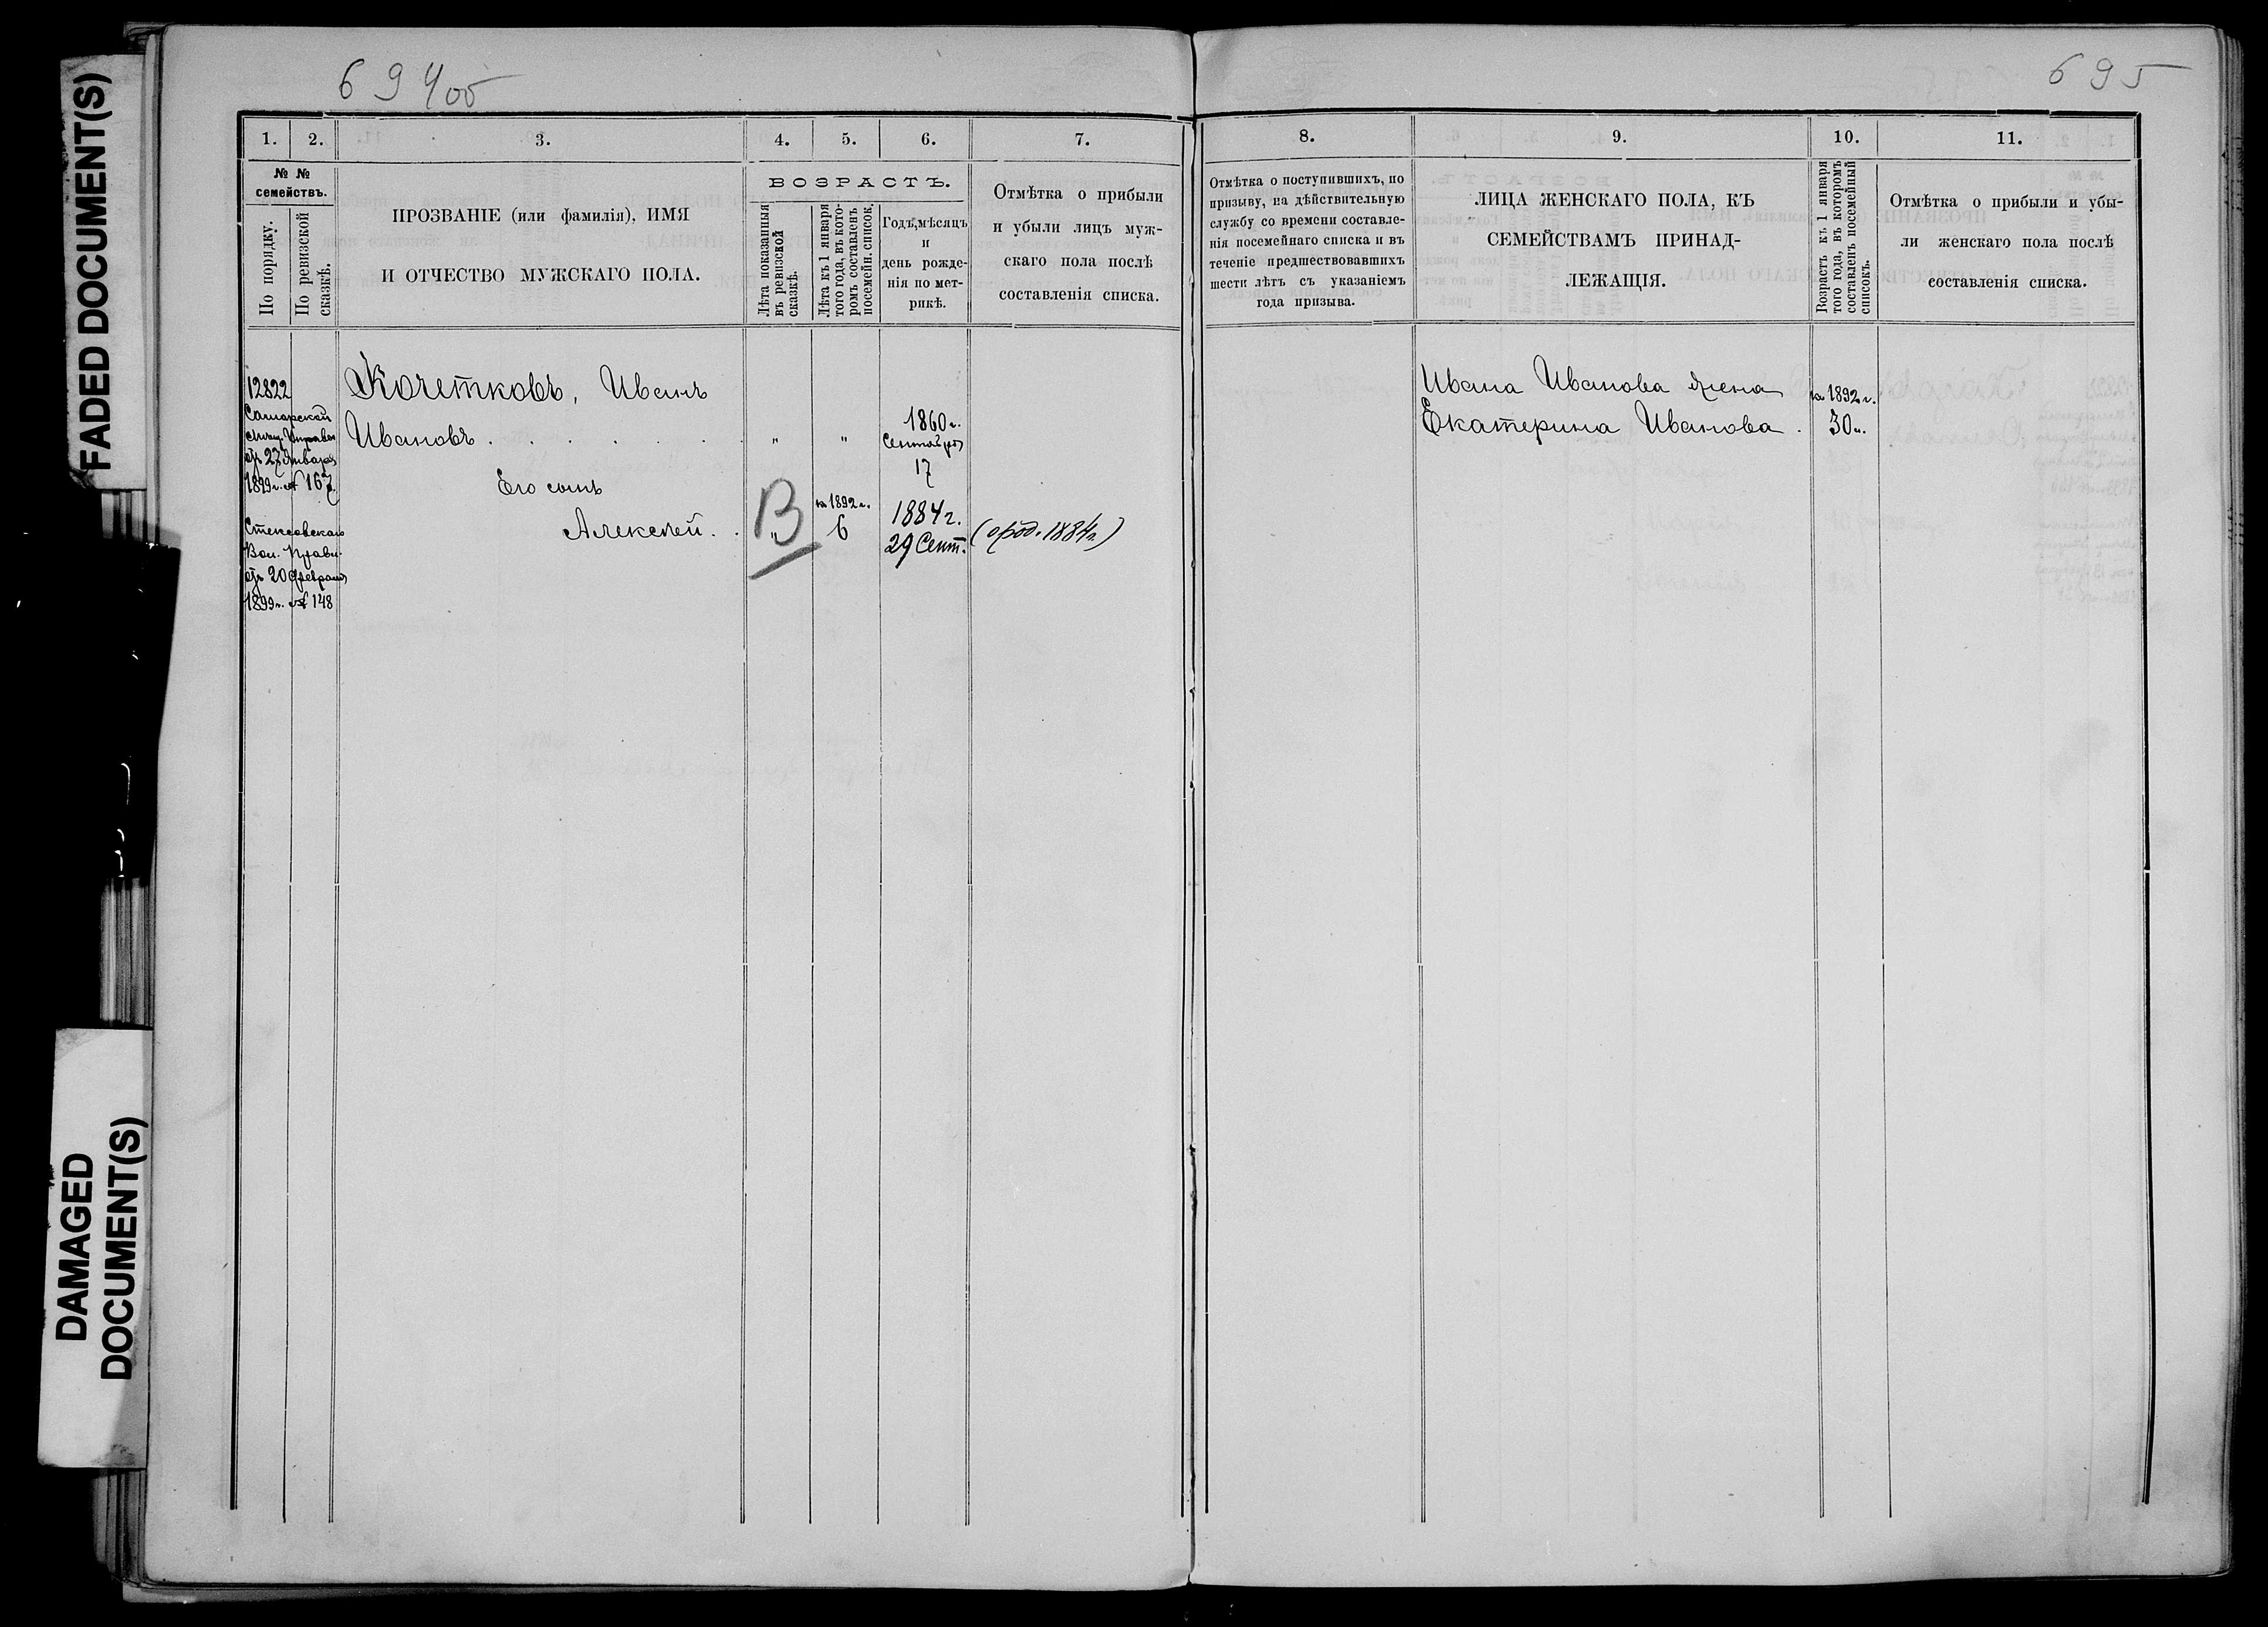 FADED DOCUMENT(S)
DAMAGED
DOCUMENT(S)
694об
1. 2. 3. 4. 5. 6. 7.
№ №
семействъ.
По порядку.
По ревизской
сказкѣ.
ПРОЗВАНІЕ (или фамилія), ИМЯ
И ОТЧЕСТВО МУЖСКАГО ПОЛА.
ВОЗРАСТЪ.
Лѣта показанныя
въ ревизской
сказкѣ.
Лѣта къ 1 января
того года, въ кото-
ромъ составленъ
посемейн. список.
Годъ, мѣсяцъ
и
день рожде-
нія по мет-
рикѣ.
Отмѣтка о прибыли
и убыли лицъ муж-
скаго пола послѣ
составленія списка.
12822
Самарской
Мѣщ. Управы
отъ 27 Января
1899 г. № 167.
Стексовскаго
Вол. Правл.
отъ 20 Февраля
1899 г. № 148
Кочетковъ, Иванъ
Ивановъ . . . . . . . " "
1860 г.
Сентября
17
Его сынъ
Алексѣй . . "
В
на 1892 г.
6
1884 г.
29 Сент.
(р. 1884 г.)
695
8. 9. 10. 11.
Отмѣтка о поступившихъ, по
призыву, на дѣйствительную
службу со времени составле-
нія посемейнаго списка и въ
теченіе предшествовавшихъ
шести лѣтъ съ указаніемъ
года призыва.
ЛИЦА ЖЕНСКАГО ПОЛА, КЪ
СЕМЕЙСТВАМЪ ПРИНАД-
ЛЕЖАЩІЯ.
Возрастъ къ 1 января
того года, въ которомъ
составленъ посемейный
списокъ.
Отмѣтка о прибыли и убы-
ли женскаго пола послѣ
составленія списка.
Ивана Иванова жена
Екатерина Иванова .
на 1892 г.
30 л.